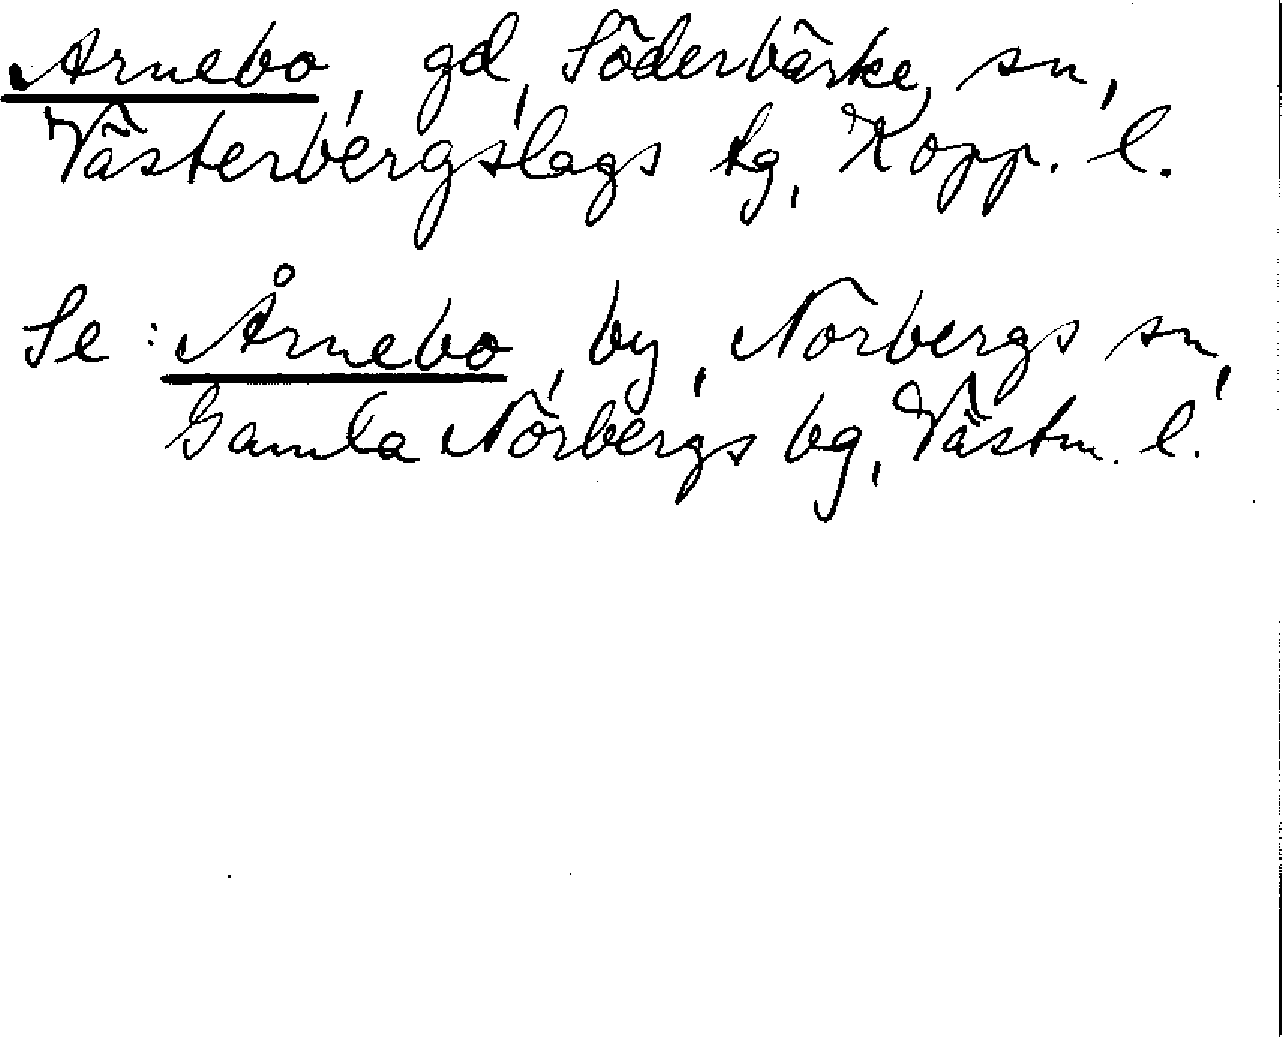 Arnebo, gd, Söderbärke sn,
Västerbergslags tg, Kopp. l.
Se: Årnebo, by, Norbergs sn,
Gamla Norbergs bg, Västm. l.